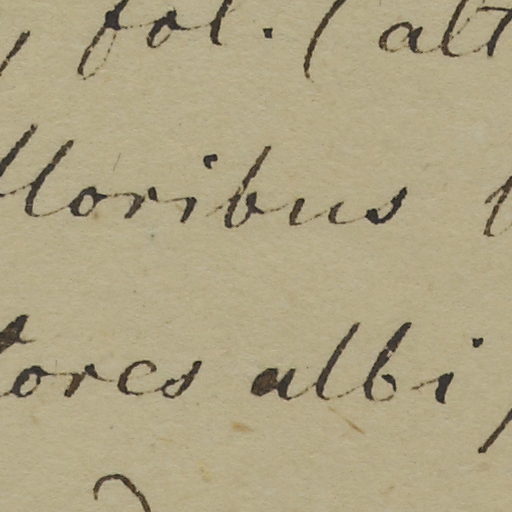 , fol. (alt
floribus
flores albi,